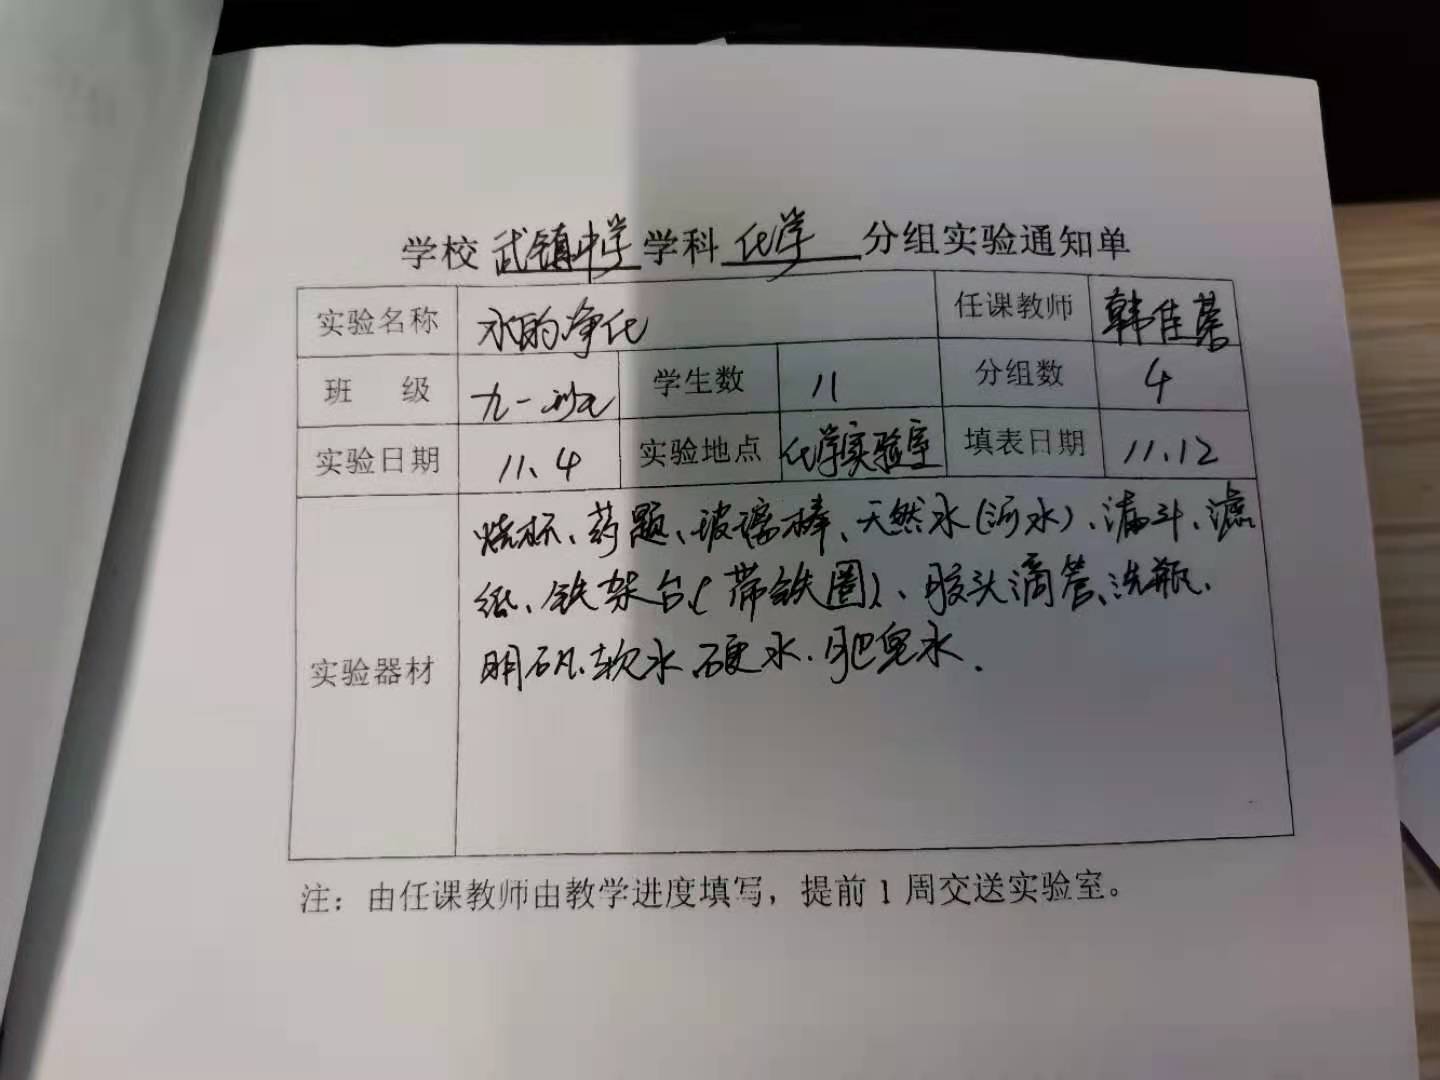 学校 武镇中学 学科 化学 分组实验通知单
实验名称 水的净化 任课教师 韩佳
班 级 九一班 学生数 11 分组数 4
实验日期 11.4 实验地点 化学实验室 填表日期 11.12
实验器材
烧杯、药匙、玻璃棒、天然水(河水)、漏斗、滤
纸、铁架台(带铁圈)、胶头滴管、洗瓶、
明矾、软水、硬水、肥皂水.
注：由任课教师由教学进度填写，提前 1 周交送实验室。